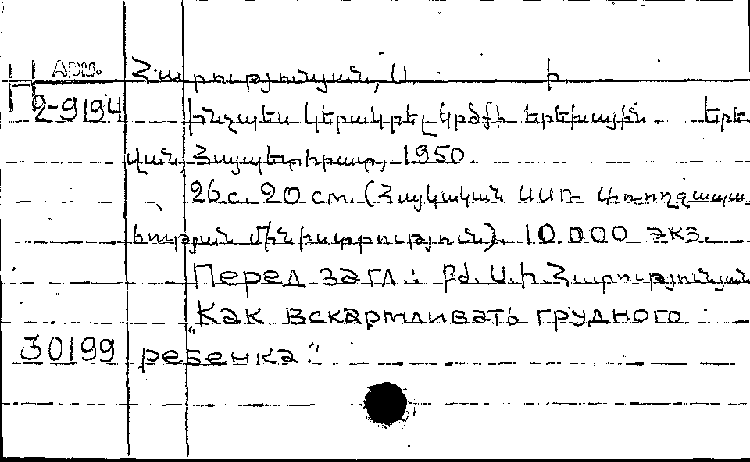 Арм. Հարությունյան, Ս. Ի
2-9194 Ինչպես կերակրել կրծքի երեխային. Երե
վան, Հայպետհրատ, 1950
26 с. 20 см. (Հայկական ՍՍՌ Առողջապա
հության Մինիստրություն). 10.000 экз.
Перед загл.: բժ. Ս.Ի. Հարությունյան
"Как вскармливать грудного
30199 ребенка"